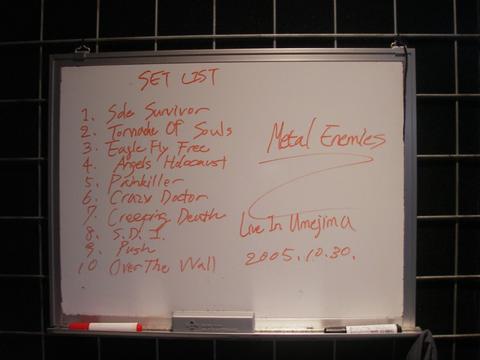 SET LIST
1. Sole Survivor
2. Tornade Of Souls
3 Eagle Fly Free
4. Angels Holocaust
5. Painkiller
6. Crazy Doctor
7. Creeping Death
8. S.D.I.
9. Push
10 Over The Wall
Metal Enemies
Live In Umejima
2005.10.30.